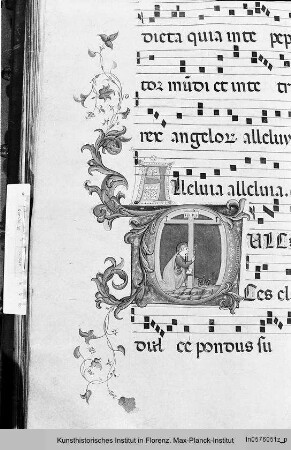 dicta quia inte pep
tor mūdi et inte
rex angelorz alleluy
Alleluia alleluia.
DULCE
Ces cl
dul ce pondus su
Kunsthistorisches Institut in Florenz. Max-Planck-Institut
ln0576051z_p